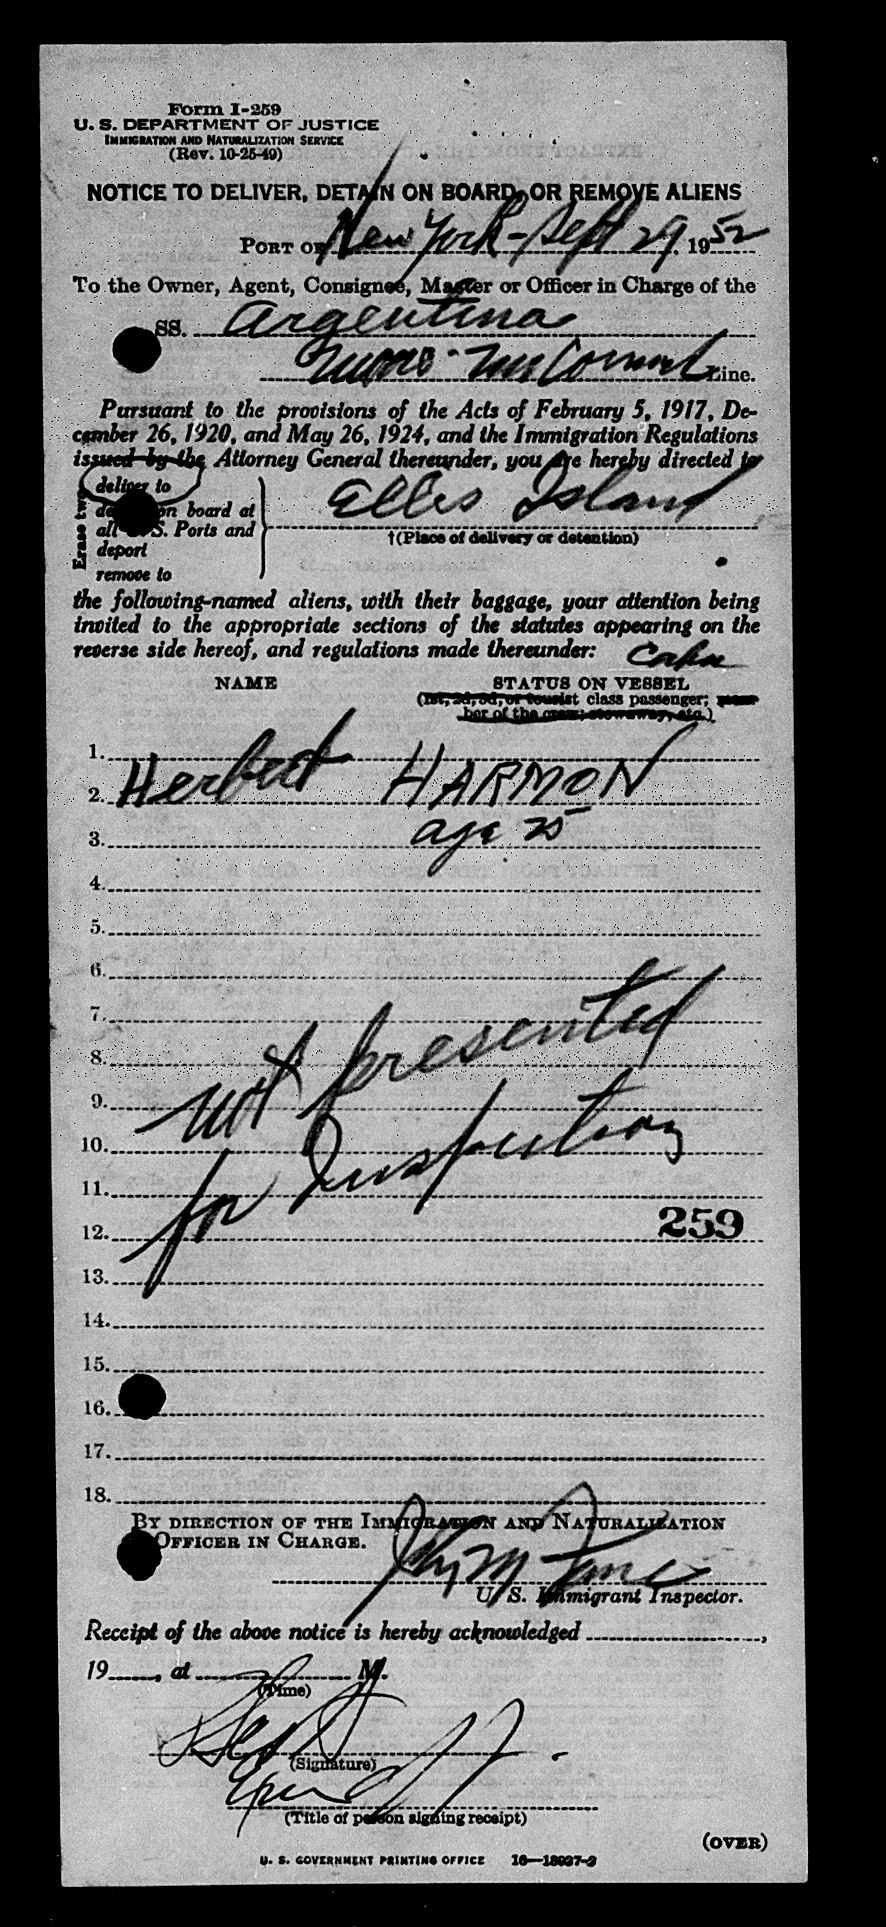 Form I-259
U. S. DEPARTMENT OF JUSTICE
IMMIGRATION AND NATURALIZATION SERVICE
(Rev. 10-25-49)
NOTICE TO DELIVER, DETAIN ON BOARD, OR REMOVE ALIENS
PORT OF New York - Sept 29, 1952
To the Owner, Agent, Consignee, Master or Officer in Charge of the
SS. Argentina
Moore-McCormack Line.
Pursuant to the provisions of the Acts of February 5, 1917, De-
cember 26, 1920, and May 26, 1924, and the Immigration Regulations
issued by the Attorney General thereunder, you are hereby directed to
Erase two
deliver to
on board at
all S. Ports and
deport
remove to
Ellis Island
†(Place of delivery or detention)
the following-named aliens, with their baggage, your attention being
invited to the appropriate sections of the statutes appearing on the
reverse side hereof, and regulations made thereunder:
NAME
STATUS ON VESSEL
(1st, 2d, 3d, or tourist class passenger; mem-
ber of the crew; stowaway, etc.)
1.
2. Herbert HARMON
3. age 25
4.
5.
6.
7.
8.
9.
10.
11.
12.
13.
14.
15.
16.
17.
18.
not presented
for Inspection
259
BY DIRECTION OF THE IMMIGRATION AND NATURALIZATION
OFFICER IN CHARGE.
U. S. Immigrant Inspector.
Receipt of the above notice is hereby acknowledged ,
19 , at M.
(Time)
(Signature)
(Title of person signing receipt)
(OVER)
U. S. GOVERNMENT PRINTING OFFICE 16—18937-2